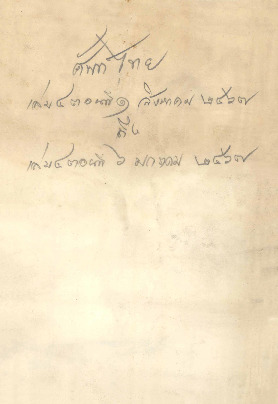 ศัพท์ไทย
เล่ม ๔ ตอนที่ ๑ สิงหาคม ๒๔๖๗
ถึง
เล่ม ๔ ตอนที่ ๖ มกราคม ๒๔๖๗